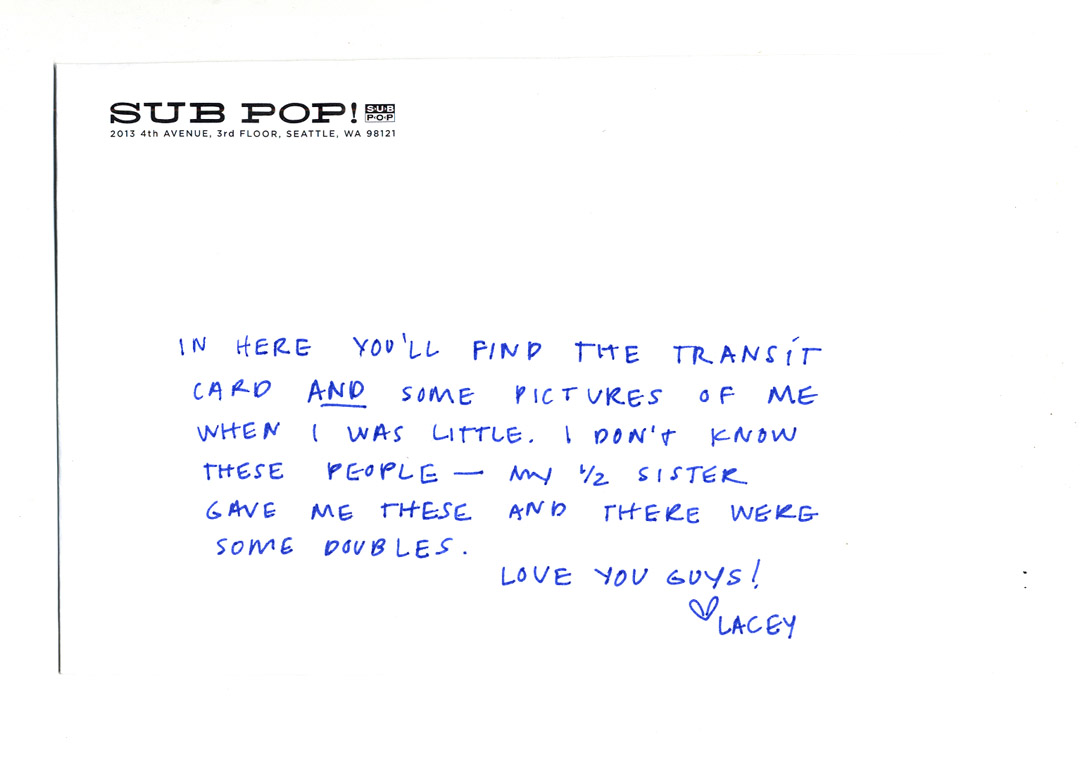 SUB POP! SUB POP
2013 4th AVENUE, 3rd FLOOR, SEATTLE, WA 98121
IN HERE YOU'LL FIND THE TRANSIT
CARD AND SOME PICTURES OF ME
WHEN I WAS LITTLE. I DON'T KNOW
THESE PEOPLE — MY 1/2 SISTER
GAVE ME THESE AND THERE WERE
SOME DOUBLES.
LOVE YOU GUYS!
♡LACEY